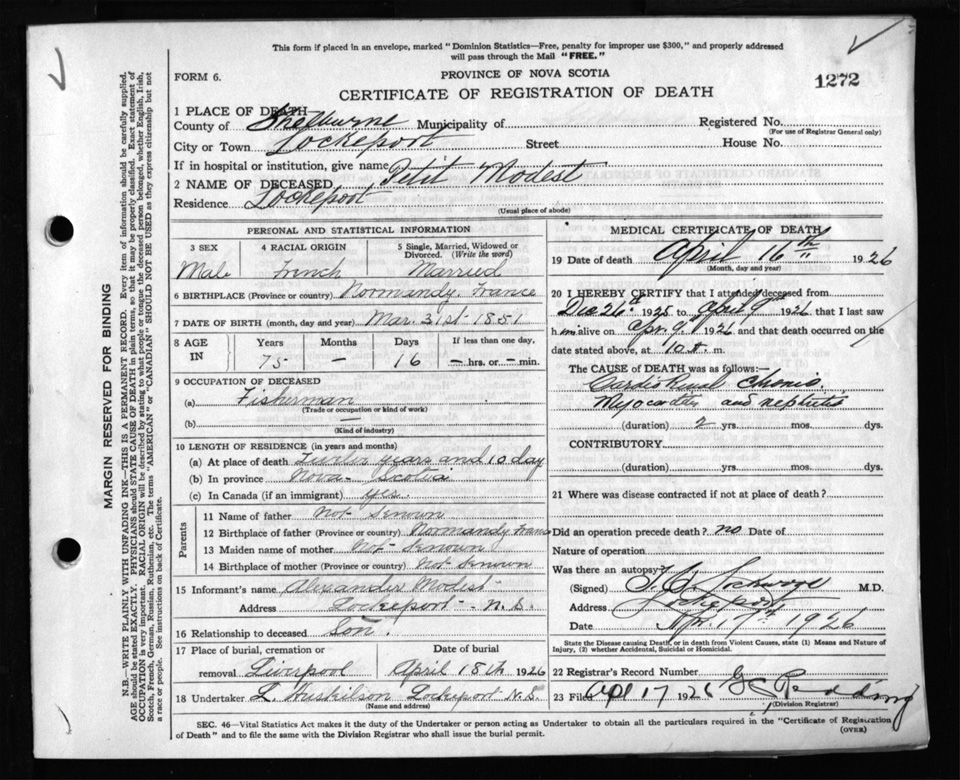 This form if placed in an envelope, marked "Dominion Statistics—Free, penalty for improper use $300," and properly addressed
will pass through the Mail "FREE."
FORM 6.
PROVINCE OF NOVA SCOTIA
1272
CERTIFICATE OF REGISTRATION OF DEATH
1 PLACE OF DEATH
County of Shelburne Municipality of Registered No.
(For use of Registrar General only)
City or Town Lockeport Street House No.
If in hospital or institution, give name
2 NAME OF DECEASED Petit Modest
Residence Lockeport
(Usual place of abode)
PERSONAL AND STATISTICAL INFORMATION
3 SEX 4 RACIAL ORIGIN 5 Single, Married, Widowed or
Divorced. (Write the word)
Male French Married
6 BIRTHPLACE (Province or country) Normandy, France
7 DATE OF BIRTH (month, day and year) Mar. 31st 1851
8 AGE IN Years Months Days If less than one day,
75 — 16 — hrs. or — min.
9 OCCUPATION OF DECEASED
(a) Fisherman
(Trade or occupation or kind of work)
(b) —
(Kind of industry)
10 LENGTH OF RESIDENCE (in years and months)
(a) At place of death years and 10 day
(b) In province Nova-Scotia
(c) In Canada (if an immigrant) yes.
Parents
11 Name of father Not- Known
12 Birthplace of father (Province or country) Normandy France
13 Maiden name of mother Not- Known
14 Birthplace of mother (Province or country) Not- Known
15 Informant's name Alexander Modest
Address Lockeport - N.S.
16 Relationship to deceased Son.
17 Place of burial, cremation or Date of burial
removal Liverpool April 18th 1926
18 Undertaker L. Huskilson Lockeport N.S.
(Name and address)
MEDICAL CERTIFICATE OF DEATH
19 Date of death April 16th 1926
(Month, day and year)
20 I HEREBY CERTIFY that I attended deceased from
Dec 26th 1925 to April 9th 1926 that I last saw
h im alive on Apr. 9th 1926 and that death occurred on the
date stated above, at 10 m.
The CAUSE of DEATH was as follows:—
Cardio Renal Chronic
Myocarditis and nephritis
(duration) 2 yrs. mos. dys.
CONTRIBUTORY
(duration) yrs. mos. dys.
21 Where was disease contracted if not at place of death?
Did an operation precede death? no Date of
Nature of operation
Was there an autopsy?
(Signed) M.D.
Address Lockeport
Date Apr. 17th 1926
State the Disease causing Death, or in death from Violent Causes, state (1) Means and Nature of
Injury, (2) whether Accidental, Suicidal or Homicidal.
22 Registrar's Record Number
23 Filed Apl 17 1926
(Division Registrar)
SEC. 46—Vital Statistics Act makes it the duty of the Undertaker or person acting as Undertaker to obtain all the particulars required in the "Certificate of Registration
of Death" and to file the same with the Division Registrar who shall issue the burial permit. (OVER)
MARGIN RESERVED FOR BINDING
N.B.—WRITE PLAINLY WITH UNFADING INK—THIS IS A PERMANENT RECORD. Every item of information should be carefully supplied.
AGE should be stated EXACTLY. PHYSICIANS should STATE CAUSE OF DEATH in plain terms, so that it may be properly classified. Exact statement of
OCCUPATION is very important. RACIAL ORIGIN will be described by stating to what people or tongue the deceased person belonged, whether English, Irish,
Scotch, French, German, Russian, Ruthenian, etc. The terms "AMERICAN" or "CANADIAN" SHOULD NOT BE USED as they express citizenship but not
a race or people. See instructions on back of Certificate.